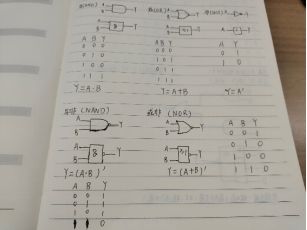 与(AND) A B Y
或(OR) A B Y
非(NOT) A Y
A B & Y
A B ≥1 Y
A 1 Y
A B Y
0 0 0
0 1 0
1 0 0
1 1 1
Y=A·B
A B Y
0 0 0
0 1 1
1 0 1
1 1 1
Y=A+B
A Y
0 1
1 0
Y=A'
与非(NAND)
A B Y
A B & Y
Y=(A·B)'
A B Y
0 0 1
0 1 1
1 0 1
1 1 0
或非(NOR)
A B Y
A B ≥1 Y
Y=(A+B)'
A B Y
0 0 1
0 1 0
1 0 0
1 1 0